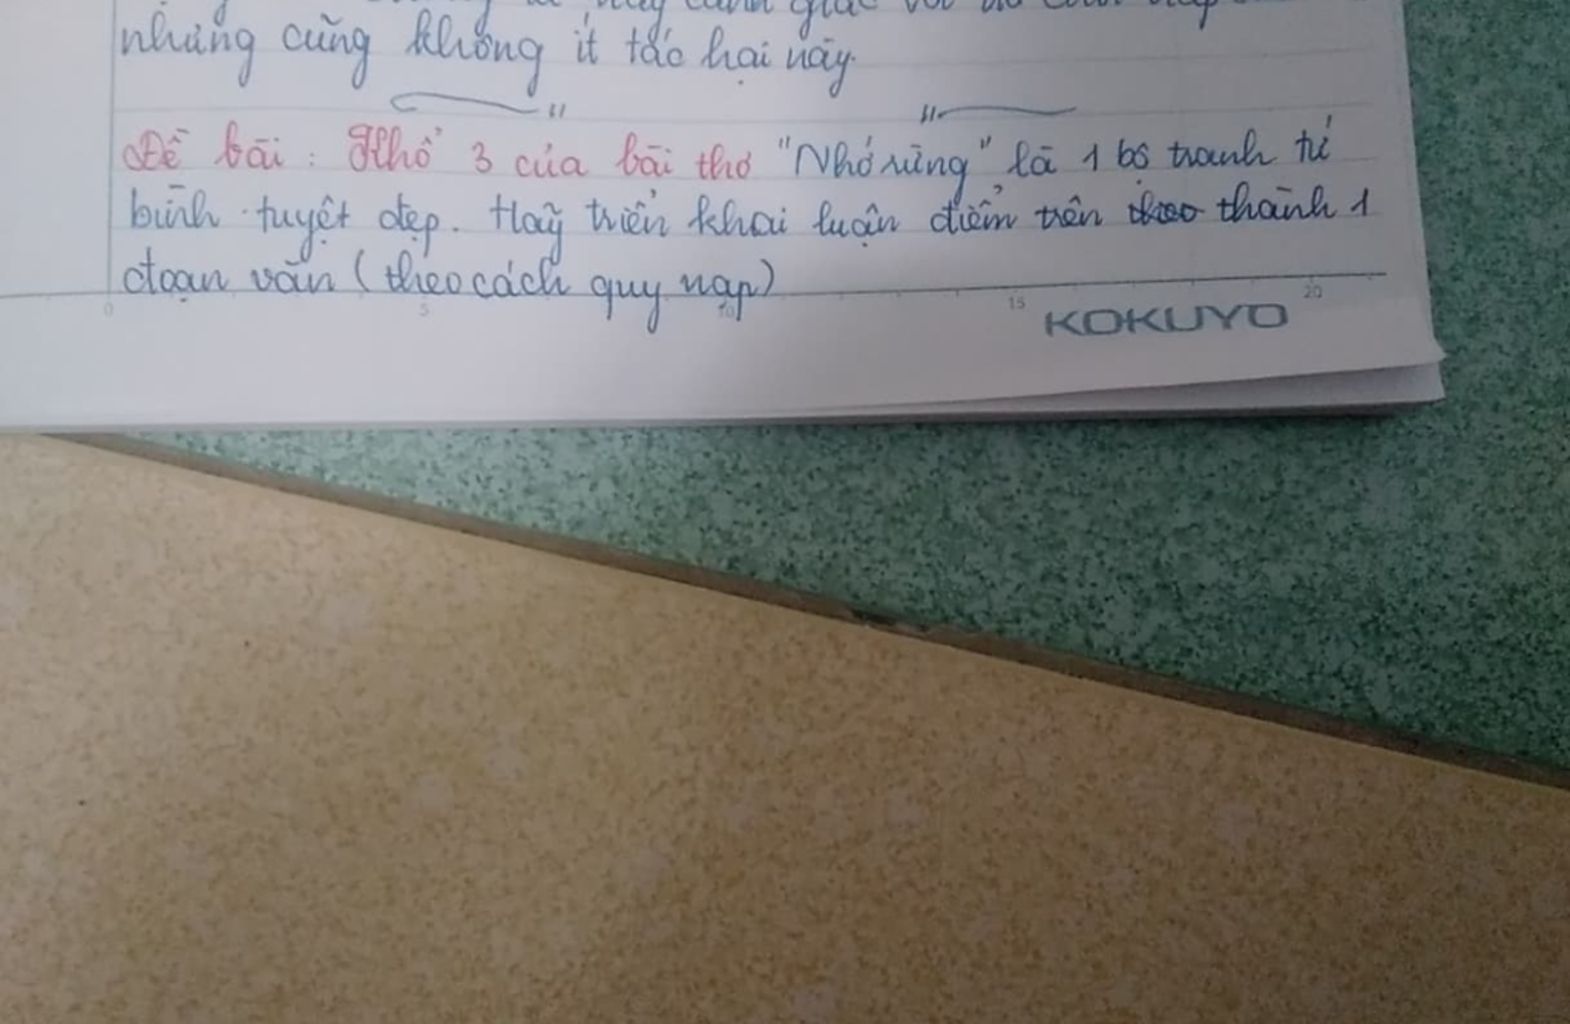 nhưng cũng không ít tác hại này.
Đề bài: Khổ 3 của bài thơ "Nhớ rừng" là 1 bộ tranh tứ
bình tuyệt đẹp. Hãy triển khai luận điểm trên theo thành 1
đoạn văn (theo cách quy nạp)
0 5 10 15 20
KOKUYO